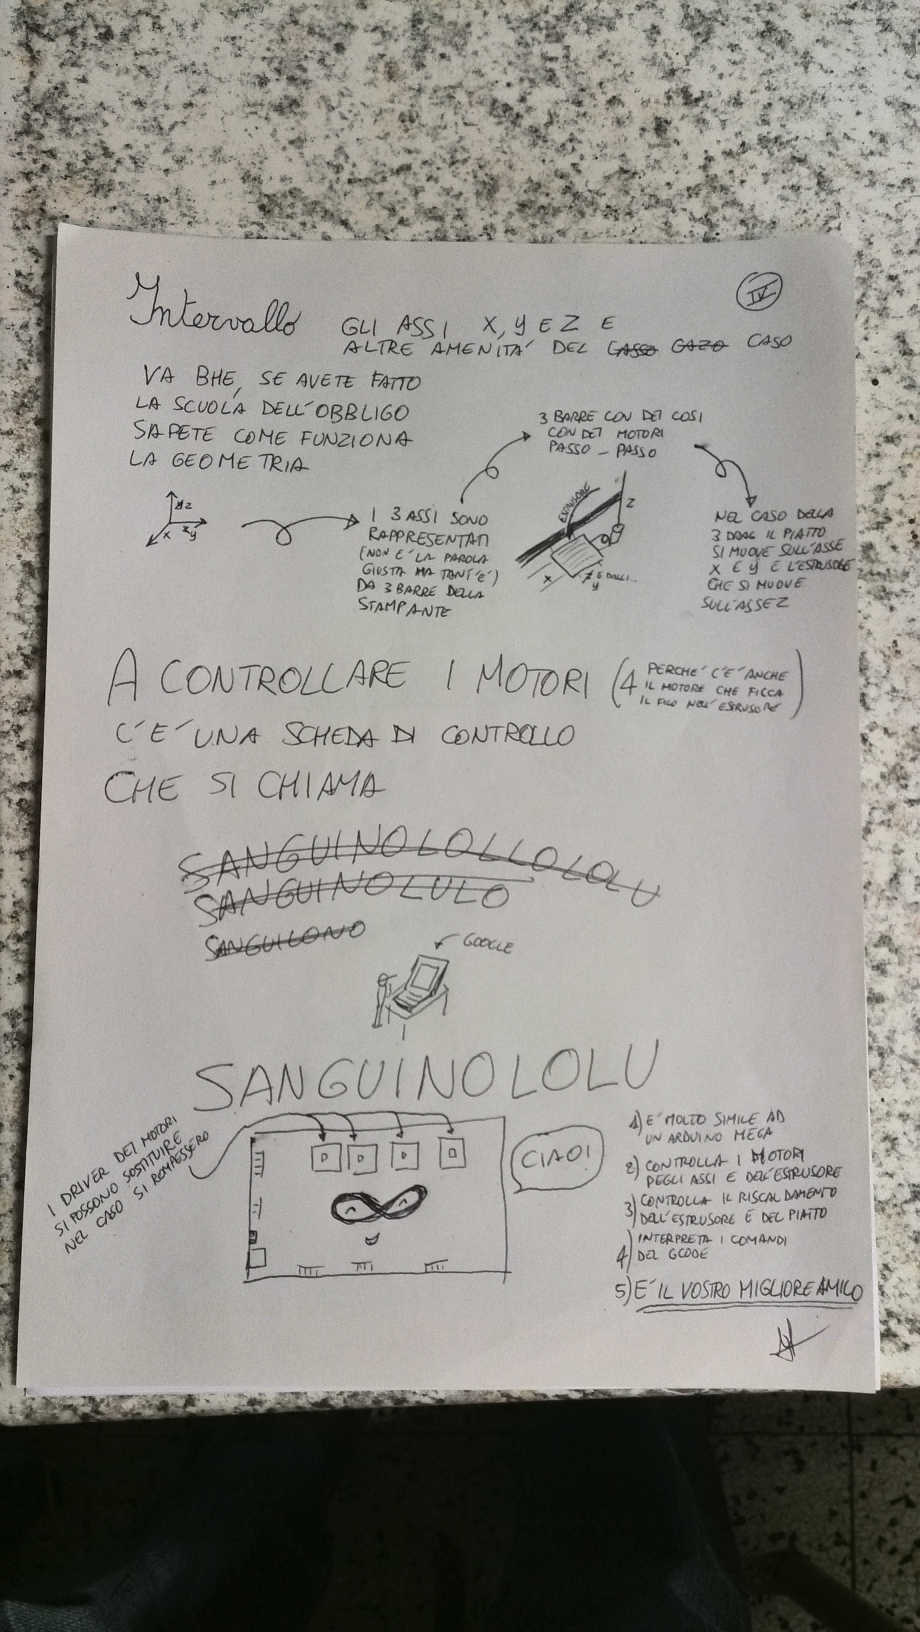 IV
Intervallo GLI ASSI X, Y E Z E
ALTRE AMENITA' DEL CASSO GAZO CASO
VA BHE, SE AVETE FATTO
LA SCUOLA DELL'OBBLIGO
SAPETE COME FUNZIONA
LA GEOMETRIA
z
x y
I 3 ASSI SONO
RAPPRESENTATI
(NON E' LA PAROLA
GIUSTA MA TANT'E')
DA 3 BARRE DELLA
STAMPANTE
3 BARRE CON DEI COSI
CON DEI MOTORI
PASSO - PASSO
ESTRUSORE
Z
X
Y
E DALLI...
NEL CASO DELLA
3 DRAG IL PIATTO
SI MUOVE SULL'ASSE
X E Y E L'ESTRUSORE
CHE SI MUOVE
SULL'ASSE Z
A CONTROLLARE I MOTORI (4 PERCHE' C'E' ANCHE
IL MOTORE CHE FICCA
IL FILO NELL'ESTRUSORE)
C'E' UNA SCHEDA DI CONTROLLO
CHE SI CHIAMA
SANGUINOLOLLOLOLU
SANGUINOLULO
SANGUILONO
GOOGLE
SANGUINOLOLU
I DRIVER DEI MOTORI
SI POSSONO SOSTITUIRE
NEL CASO SI ROMPESSERO
CIAO!
1) E' MOLTO SIMILE AD
UN ARDUINO MEGA
2) CONTROLLA I MOTORI
DEGLI ASSI E DELL'ESTRUSORE
3) CONTROLLA IL RISCALDAMENTO
DELL'ESTRUSORE E DEL PIATTO
4) INTERPRETA I COMANDI
DEL GCODE
5) E' IL VOSTRO MIGLIORE AMICO